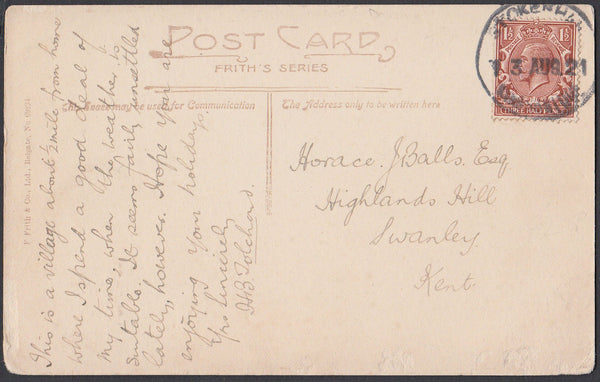 POST CARD
FRITH'S SERIES
This Space may be used for Communication
The Address only to be written here
F Frith & Co. Ltd., Reigate, No.
This is a village about ½ mile from home
where I spend a good deal of
my time, when the weather is
suitable. It seems fairly unsettled
lately, however. Hope you are
enjoying your holidays.
Yrs sincerely
Horace J Balls. Esq
Highlands Hill
Swanley
Kent.
1½
1½
THREE HALFPENCE
3 AUG 21